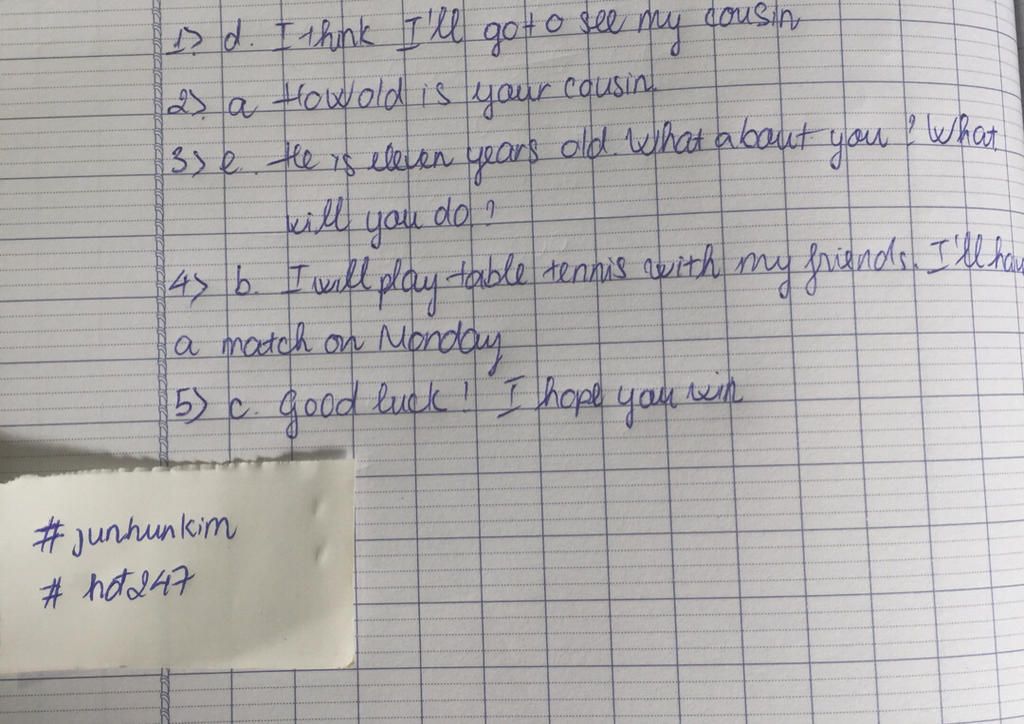 1> d. I think I'll go to see my cousin
2> a How old is your cousin.
3> e. He is eleven years old. What about you? What
will you do?
4> b. I will play table tennis with my friends. I'll hav
a match on Monday
5> c. good luck! I hope you win
#junhunkim
# hot247